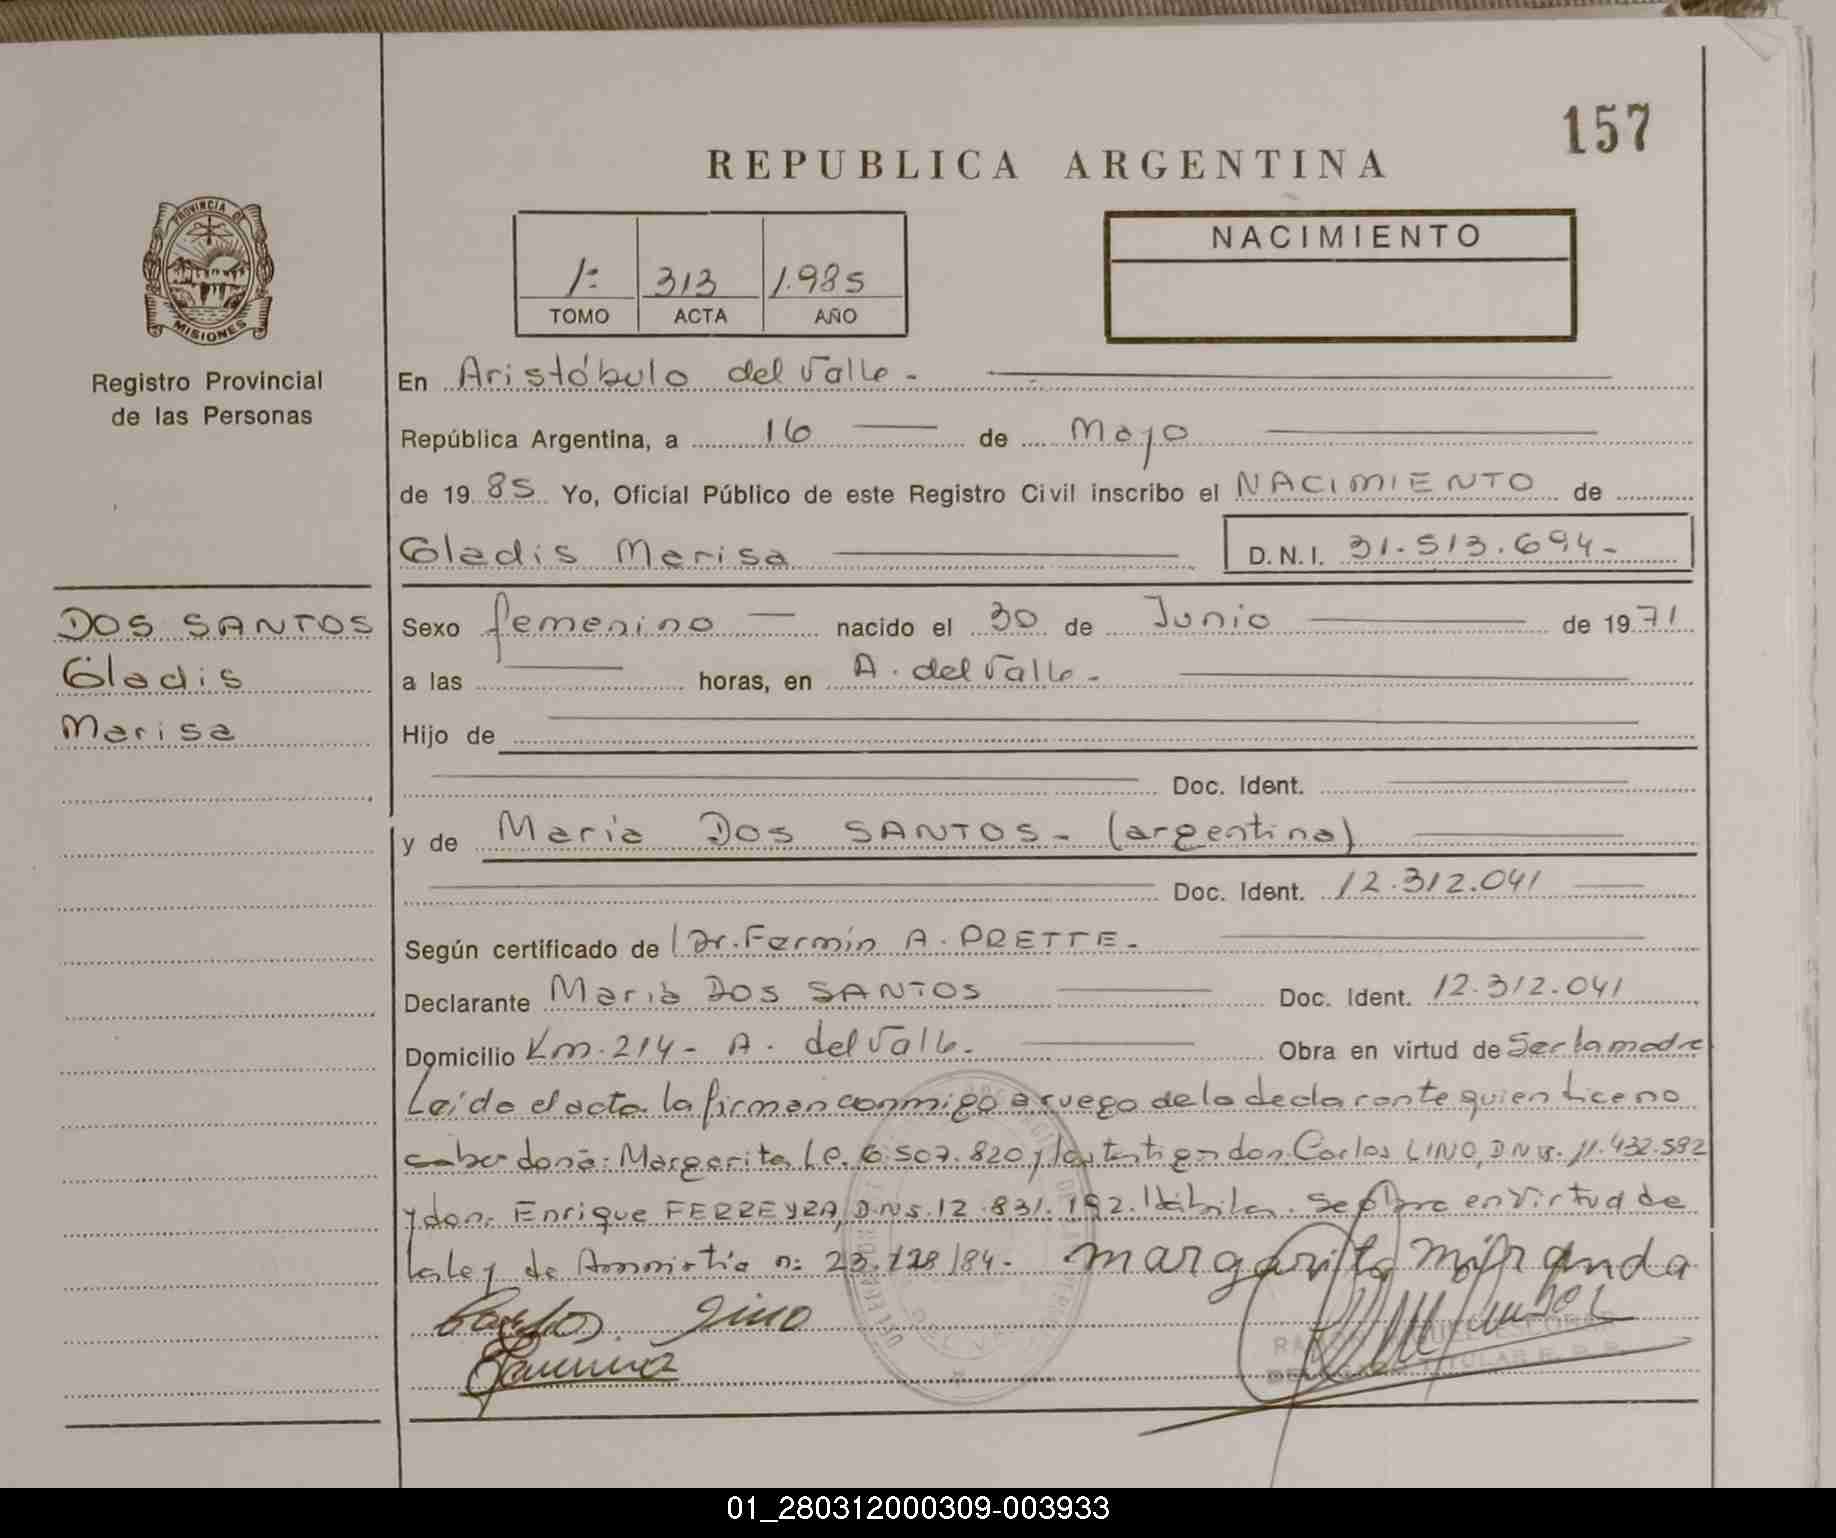 157
REPUBLICA ARGENTINA
PROVINCIA DE
MISIONES
Registro Provincial
de las Personas
1: 313 1.985
TOMO ACTA AÑO
NACIMIENTO
En Aristóbulo del Valle.-
República Argentina, a 16 de Mayo
de 19 85 Yo, Oficial Público de este Registro Civil inscribo el NACIMIENTO de
Gladis Marisa D.N.I. 31.513.694-
DOS SANTOS
Gladis
Marisa
Sexo femenino nacido el 30 de Junio de 19 71
a las horas, en A. del Valle-
Hijo de
Doc. Ident.
y de Maria DOS SANTOS- (argentina)
Doc. Ident. 12.312.041
Según certificado de Dr. Fermín A. PRETTE.
Declarante Maria DOS SANTOS Doc. Ident. 12.312.041
Domicilio Km. 214- A. del Valle. Obra en virtud de Ser la madre
Leída el acta la firman conmigo a ruego de la declarante quien dice no
saber doña: Margarita 6.507.820 y los testigos don Carlos LINO, DNI. 11.432.582
y don Enrique FERREYRA, D.N.I. 12.831.192. Hábiles. Se obra en virtud de
la ley de Amnistía n: 23.128/84- Margarita Miranda
Carlos Lino
ESCOBAR
TITULAR
01_280312000309-003933